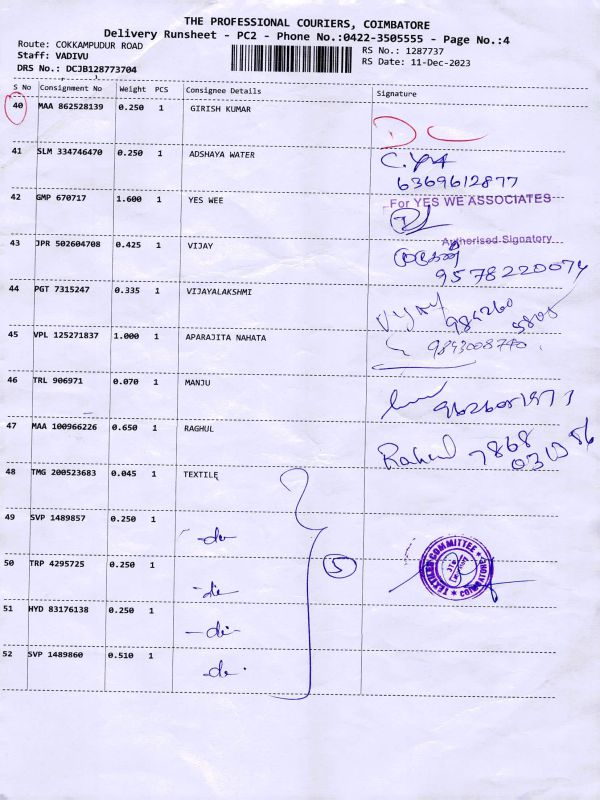 THE PROFESSIONAL COURIERS, COIMBATORE
Delivery Runsheet - PC2 - Phone No.:0422-3505555 - Page No.:4
Route: COKKAMPUDUR ROAD RS No.: 1287737
Staff: VADIVU RS Date: 11-Dec-2023
DRS No.: DCJB128773704
S No Consignment No Weight PCS Consignee Details Signature
40 MAA 862528139 0.250 1 GIRISH KUMAR
DC
41 SLM 334746470 0.250 1 ADSHAYA WATER
6369612877
42 GMP 670717 1.600 1 YES WEE For YES WE ASSOCIATES
Authorised Signatory
43 JPR 502604708 0.425 1 VIJAY
9578220074
44 PGT 7315247 0.335 1 VIJAYALAKSHMI
45 VPL 125271837 1.000 1 APARAJITA NAHATA
9893008740
46 TRL 906971 0.070 1 MANJU
47 MAA 100966226 0.650 1 RAGHUL
Rahul 7868
48 TMG 200523683 0.045 1 TEXTILE
49 SVP 1489857 0.250 1 -do-
50 TRP 4295725 0.250 1 -do-
5
TEXTILE COMMITTEE * COIMBATORE *
51 HYD 83176138 0.250 1 -do-
52 SVP 1489860 0.510 1 -do-